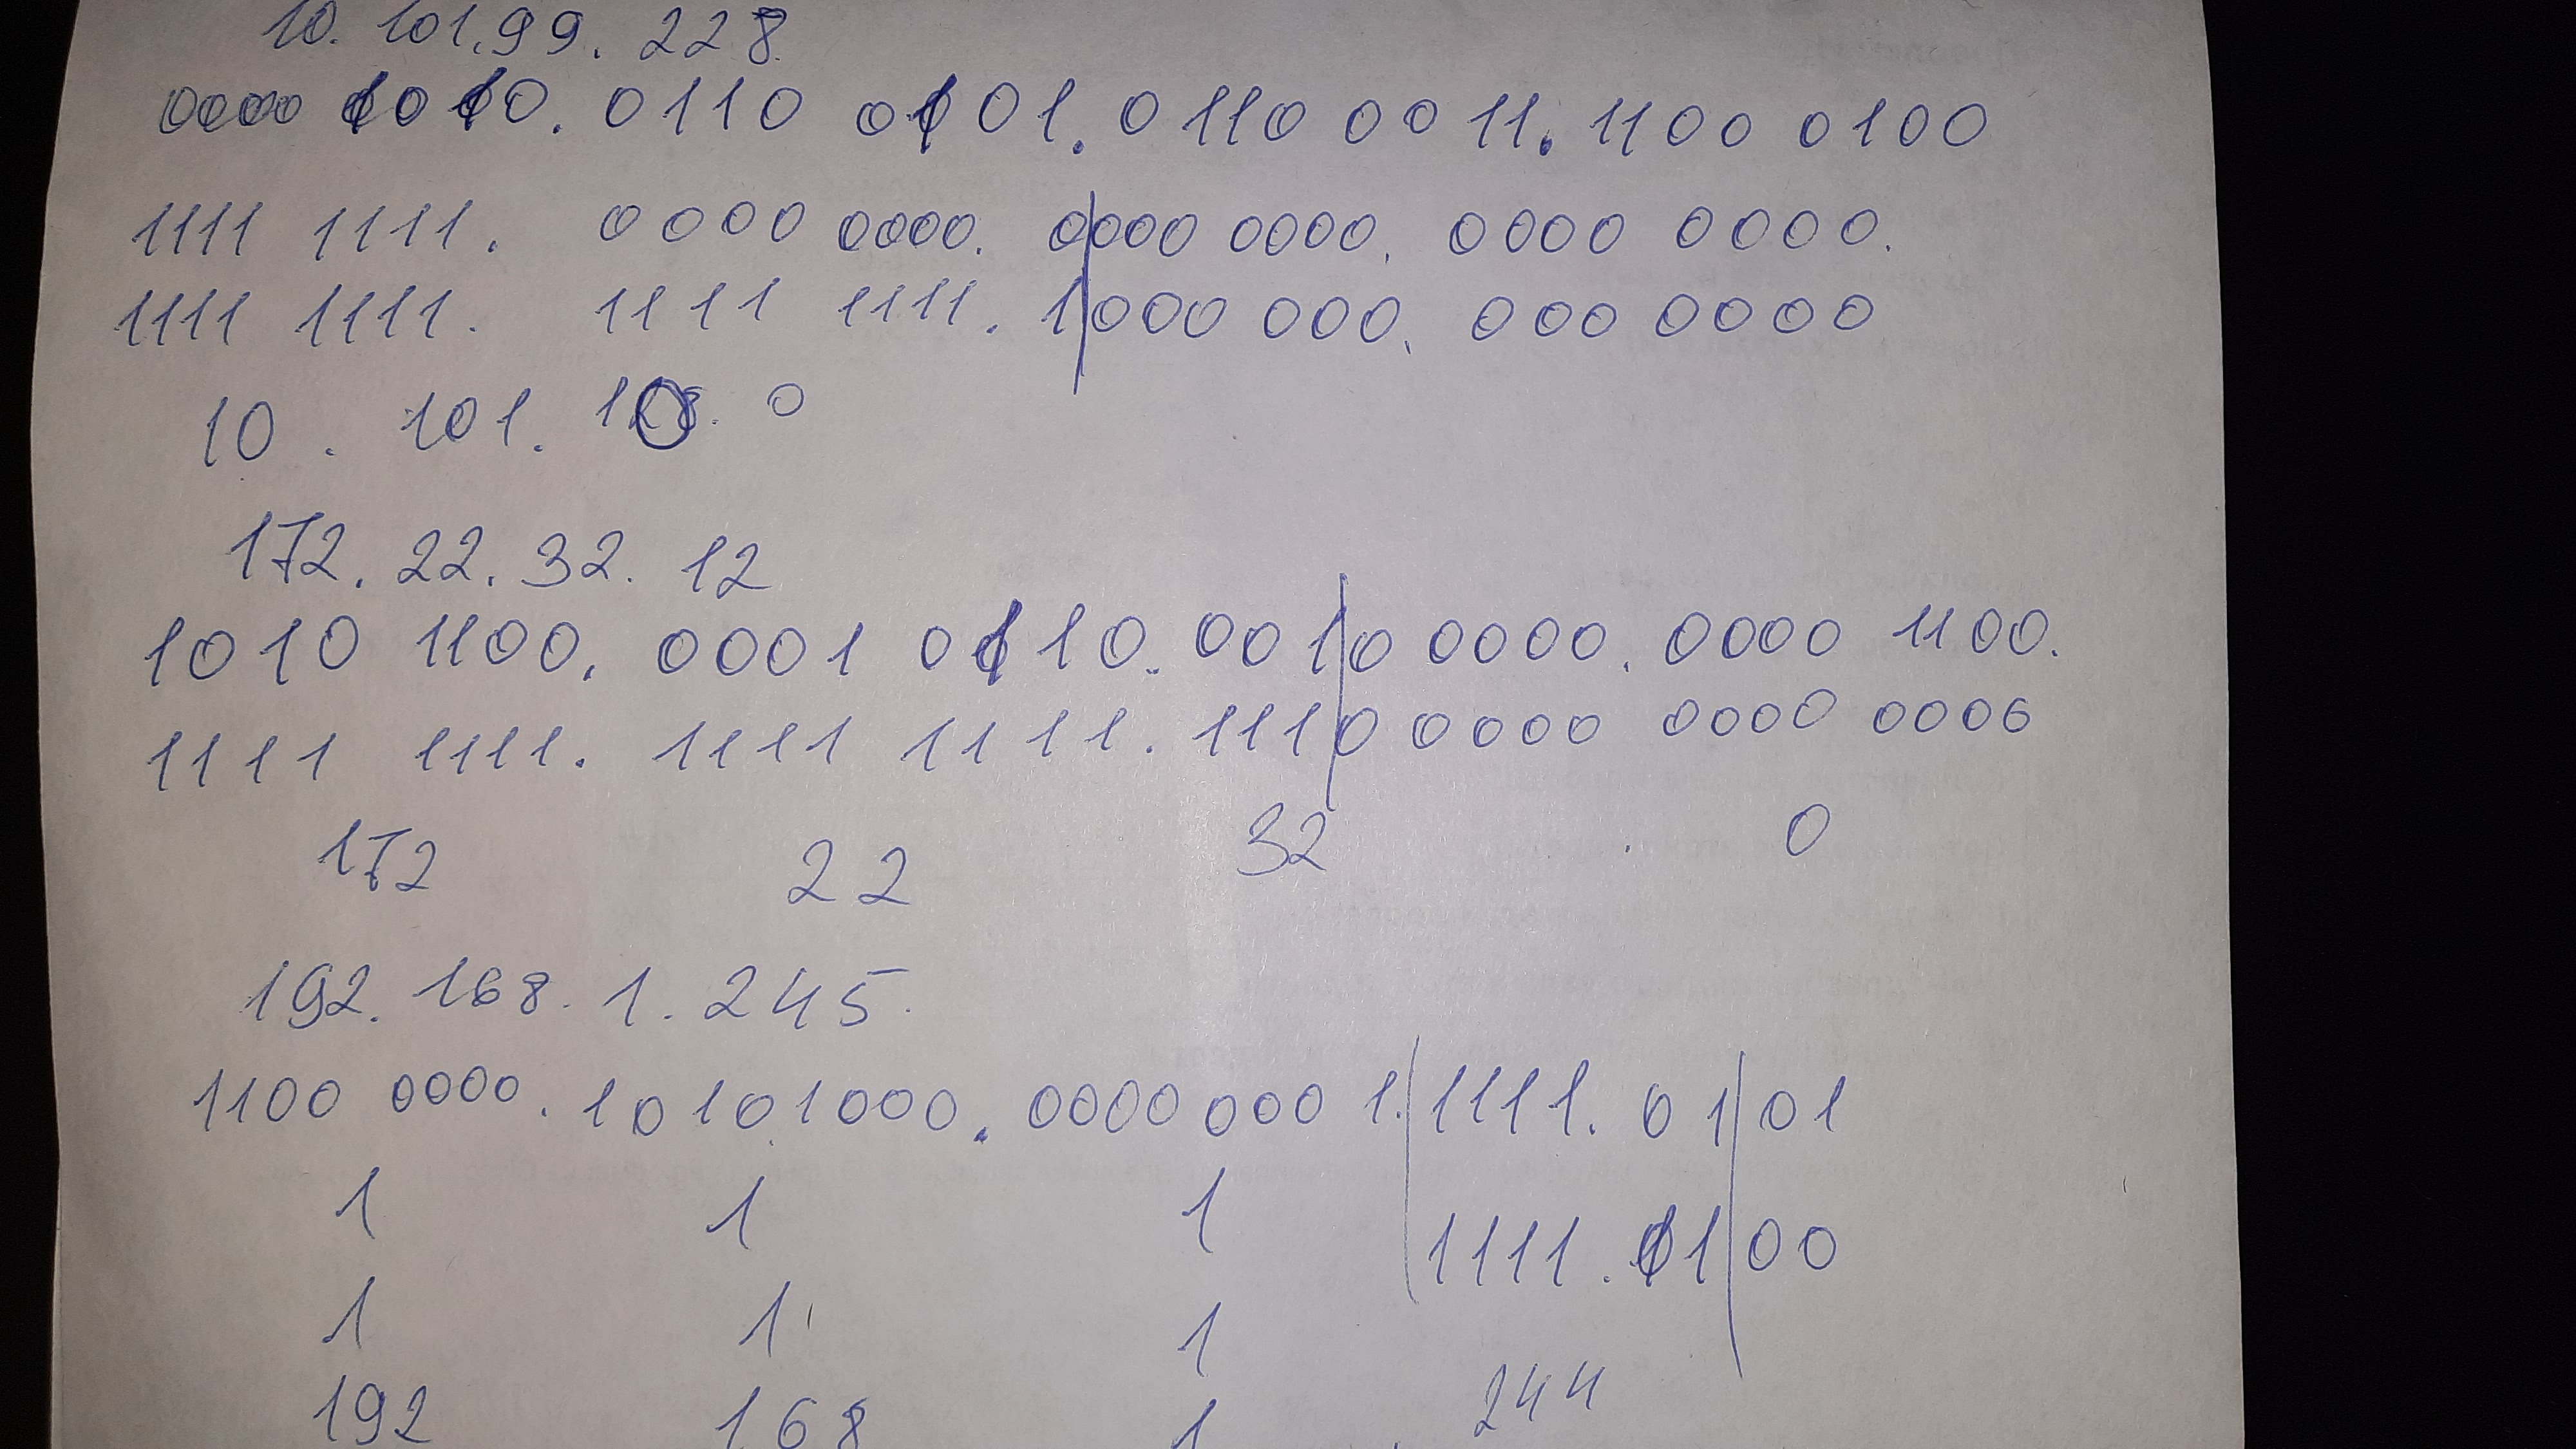 10. 101.99. 228
0000 1010. 0110 0101. 0110 0011. 1100 0100
1111 1111. 0000 0000. 0000 0000. 0000 0000.
1111 1111. 1111 1111. 1000 000. 000 0000
10. 101. 0
172. 22. 32. 12
1010 1100. 0001 0110. 0010 0000. 0000 1100.
111 1111. 1111 1111. 1110 0000 0000 0000
172 22 32 . 0
192. 168. 1. 245.
1100 0000. 1010 1000. 0000 0001. 1111. 0101
1 1 1 1111. 0100
1 1. 1
192 168 1 . 244